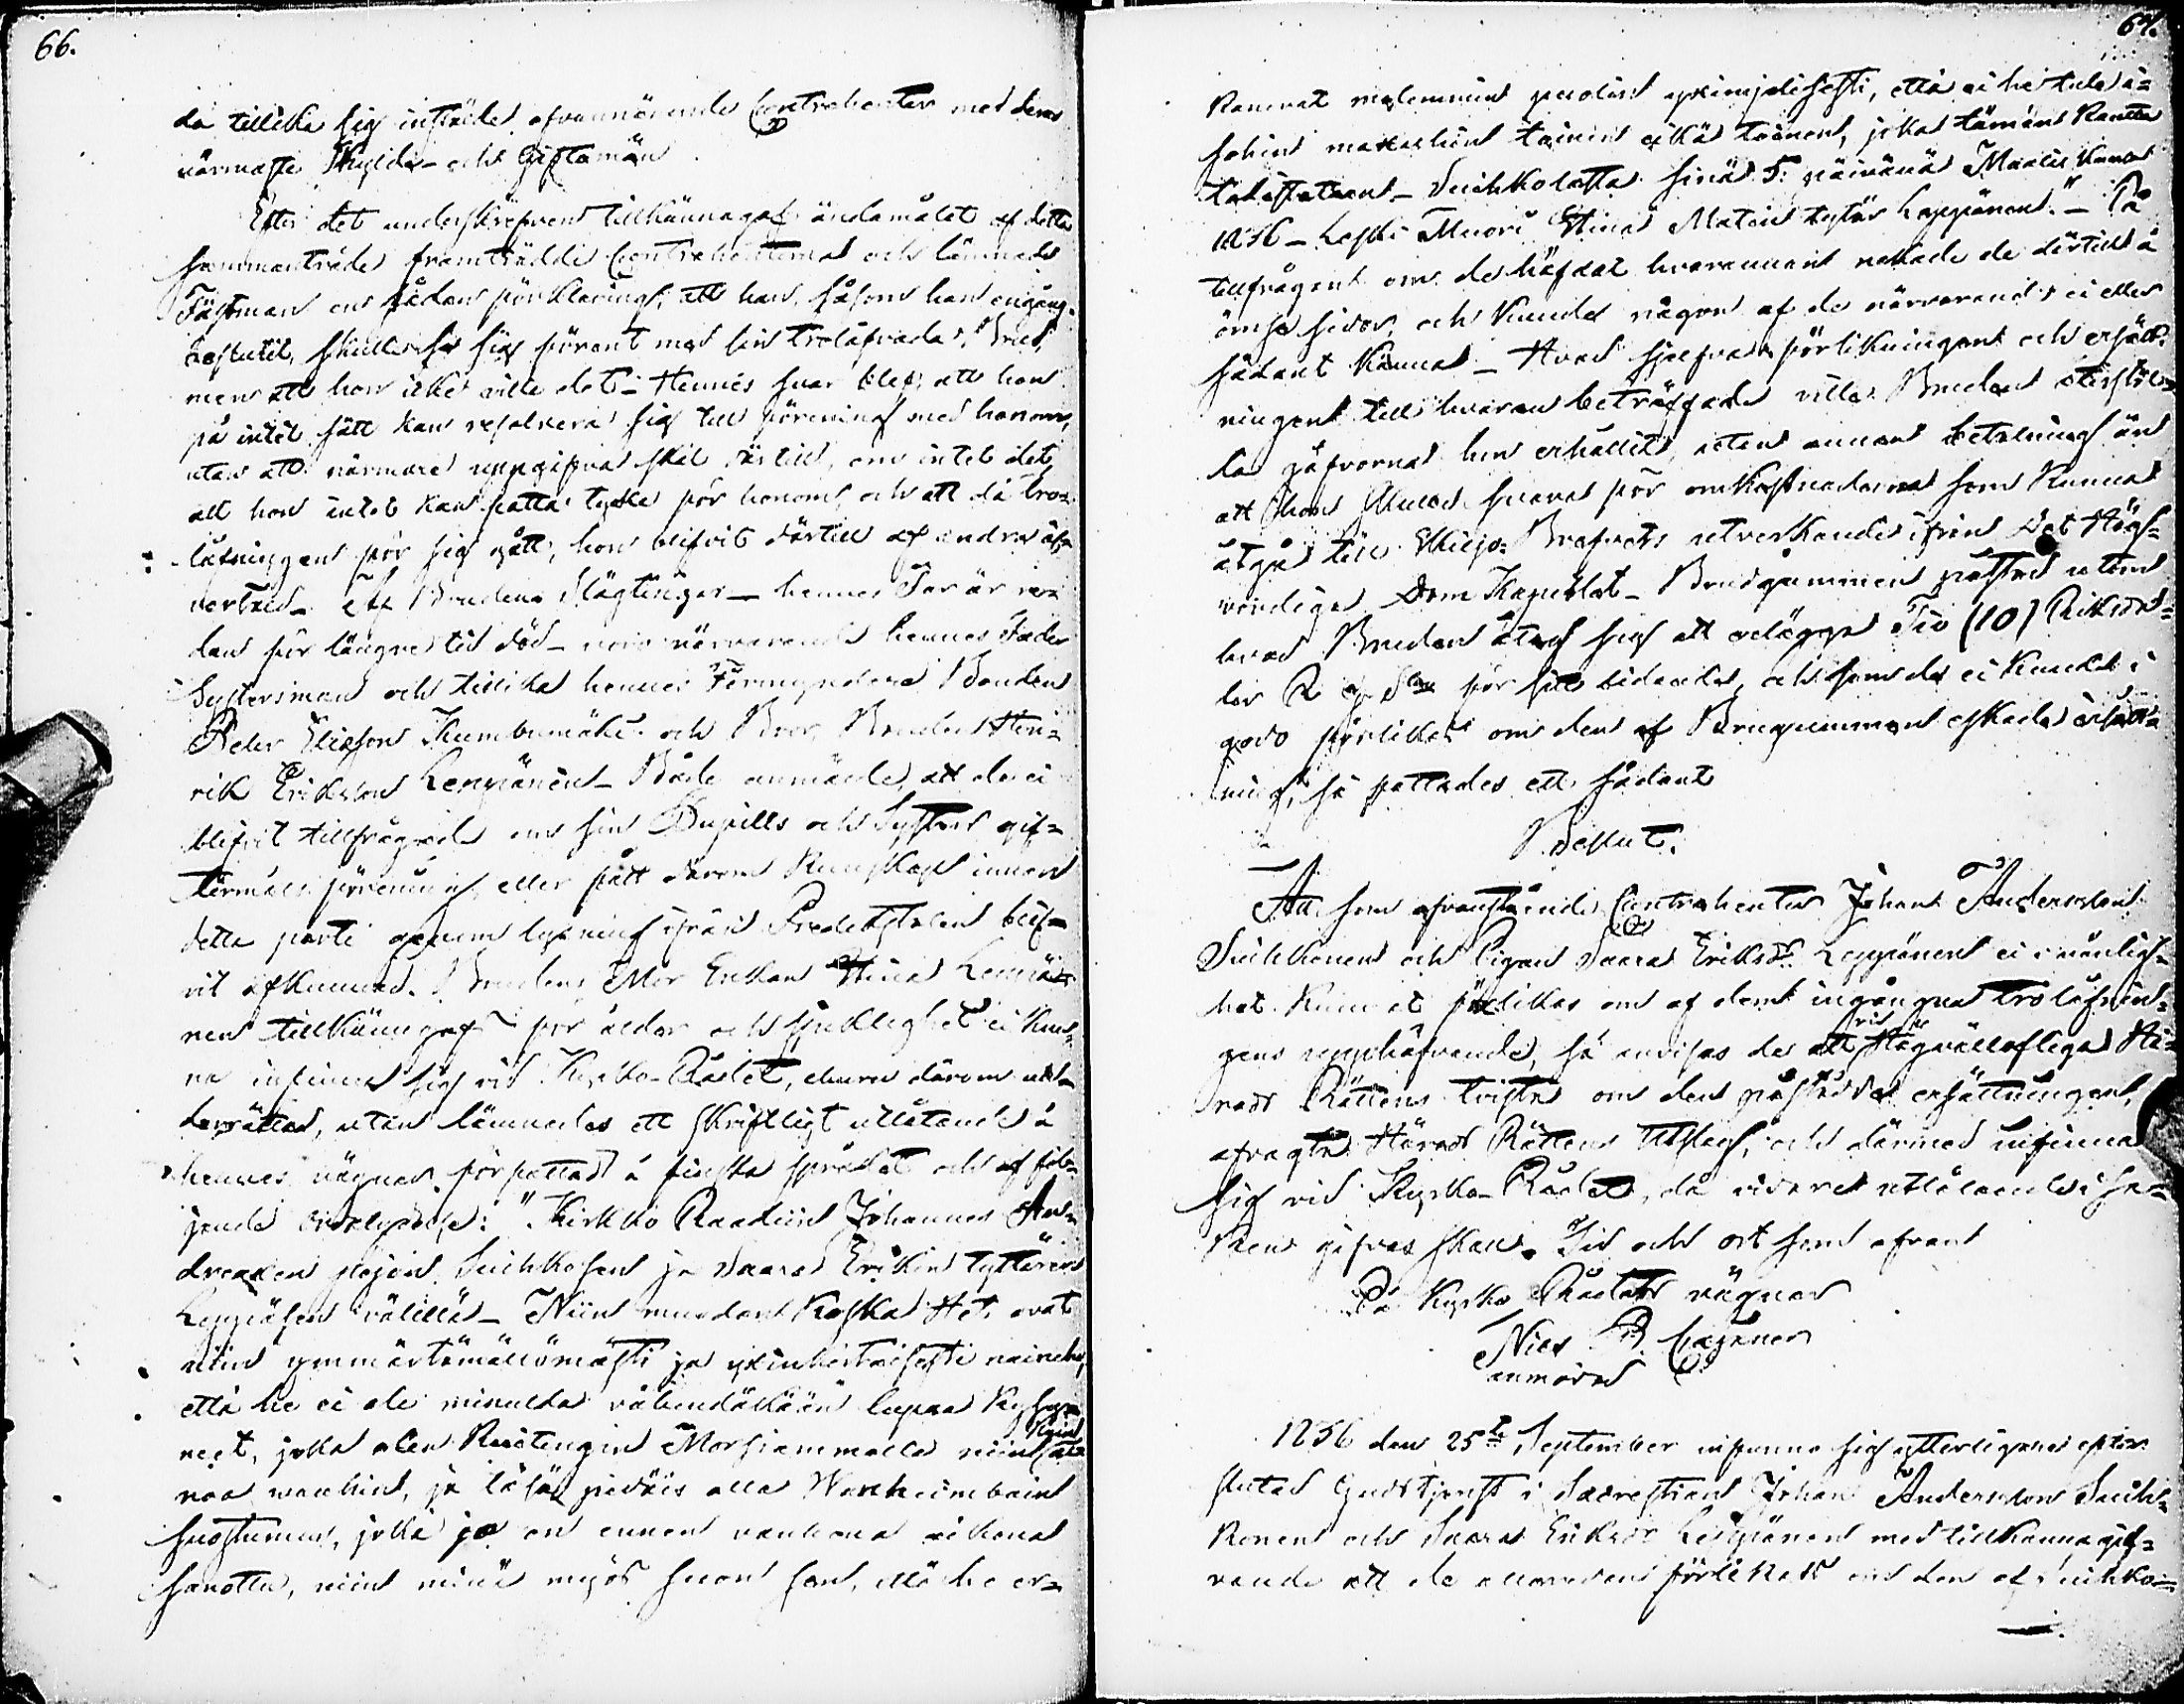 66.
då tillika sig instälde ofvannämnde Contrahenter med deras
närmaste Skylde- och Giftomän
Efter det underskrefven tillkännagaf ändamålet af detta
sammanträde framträdde Contrahenterna och lämnade
Fästman en sådan förklaring, att han, såsom han en gång
beslutit, skulle sig förent med sin trolåfvade Brud,
men att hon icke ville det - Hennes svar blef, att hon
på intet sätt kan resolvera sig till förening med honom,
utan att närmare uppgifva skäl därtill, om intet det
att hon intet kan fatta tycke för honom, och att då tro-
låfningen för sig gått, hon blifvit därtill af andra öf-
vertald - Af Brudens Slägtingar - hennes Far är re-
dan för längre tid död - voro närvarande hennes Fader
Systersman och tillika hennes Förmyndare Bonden
Peter Eliasson Kumbumäki och Bror Bonden Hen-
rik Eriksson Leppänen - Både anmälde, att de ei
blifvit tillfrågade om sin Pupills och Systers gif-
termåls förening, eller fått därom kunskap innan
detta parti genom lysning ifrån Predikstolen blif-
vit afkunnad. Brudens Mor Enkan Stina Leppä-
nen tillkännagaf för ålder och sjuklighet ei kun-
na infinna sig vid Kyrko-Rådet, ehuru därom un-
derrättad, utan lämnades ett skriftligt utlåtande å
hennes vägnar författad å finska språket och af föl-
jande ordalydelse: "Kirkko Raadiin Johannes An-
dreaxen pojan Suihkosen ja Saara Erikin tyttären
Leppäsen välillä - Niin muodon koska He ovat
niin ymmärtämättömästi ja yxinkertaisesti naineet,
että he ei ole minulda vähindäkään lupaa kysy-
neet, joka olen Ruotengin Morsiammella niin kuin
vanhin, ja täsä pidäis olla Wanhembain
suostumus, joka jo on ennen vanhana aikana
sanottu, niin minä myös suon sen, että he er-

67.
kanevat molemmin puolin yximielisesti, että ei he tule ä-
sohin maxuhun toinen eikä toinen, joka tämän kautta
todistetaan - Suihkolassa sinä 5. päivänä Maalis kuussa
1836 - Leski Muori Stina Matin tytär Leppänen." - På
tillfrågan om de häfdat hvarannan nekade de därtill å
ömse sidor, och kunde någon af de närvarande ei eller
sådant känna - Hvad sjelfva förlikningen och ersätt-
ningen till hvaran beträffade ville Bruden återstäl-
la gåfvorna hon erhållit, utan annan betalning än
att hon skulle svara för omkostnaderna som kunna
åtgå till Skiljo-Brefvets utverkande ifrån Det Hög-
vördiga Dom Kapitlet - Brudgummen påstod utom
hvad Bruden åtog sig att erlägga Tio (10) Riksda-
ler R g Slr för sitt lidande, och som de ei kunde i
godo förlikas om den af Brudgummen äskade ersätt-
ning, så fattades ett sådant
Beslut.
Att som ofvanstående Contrahenter Johan Andersson
Suihkonen och Pigan Saara Eriksdr Leppänen ei i vänlig-
het kunnat förlikas om af dem ingångna trolåfnin-
gens upphäfvande, så anvisas de att vid Högvällofliga Hä-
rads Rättens tvista om den påstådda ersättningen,
afvagta Härads Rättens Utslag, och därmed infinna
sig vid Kyrko-Rådet, då vidare utlåtande i sa-
ken gifvas skall. Tid och ort som ofvan
På Kyrko Rådets vägnar
Nils B. Cajaner
1836 den 25te September infunno sig ytterligare efter
slutad Gudstjenst i Sacrestian Johan Andersson Suih-
konen och Saara Eriksdr Leppänen med tillkännagif-
vande att de allaredan förlikats om den af Suihko-